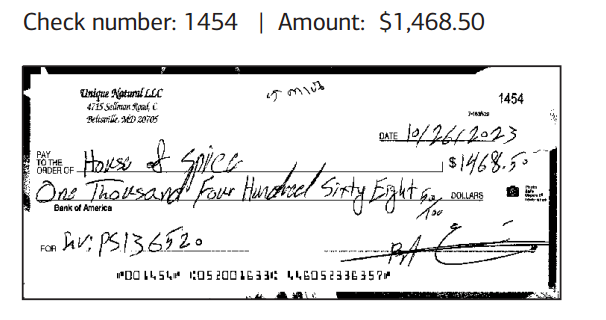 Check number: 1454 | Amount: $1,468.50
Unique Natural LLC
4715 Sellman Road, C
Beltsville, MD 20705
1454
DATE 10/26/2023
PAY TO THE ORDER OF House of Spices
$1468.50
One Thousand Four Hundred Sixty Eight 50/100 DOLLARS
Bank of America
FOR Inv: PS136520
⑈001454⑈ ⑆052001633⑆ 446052336357⑈